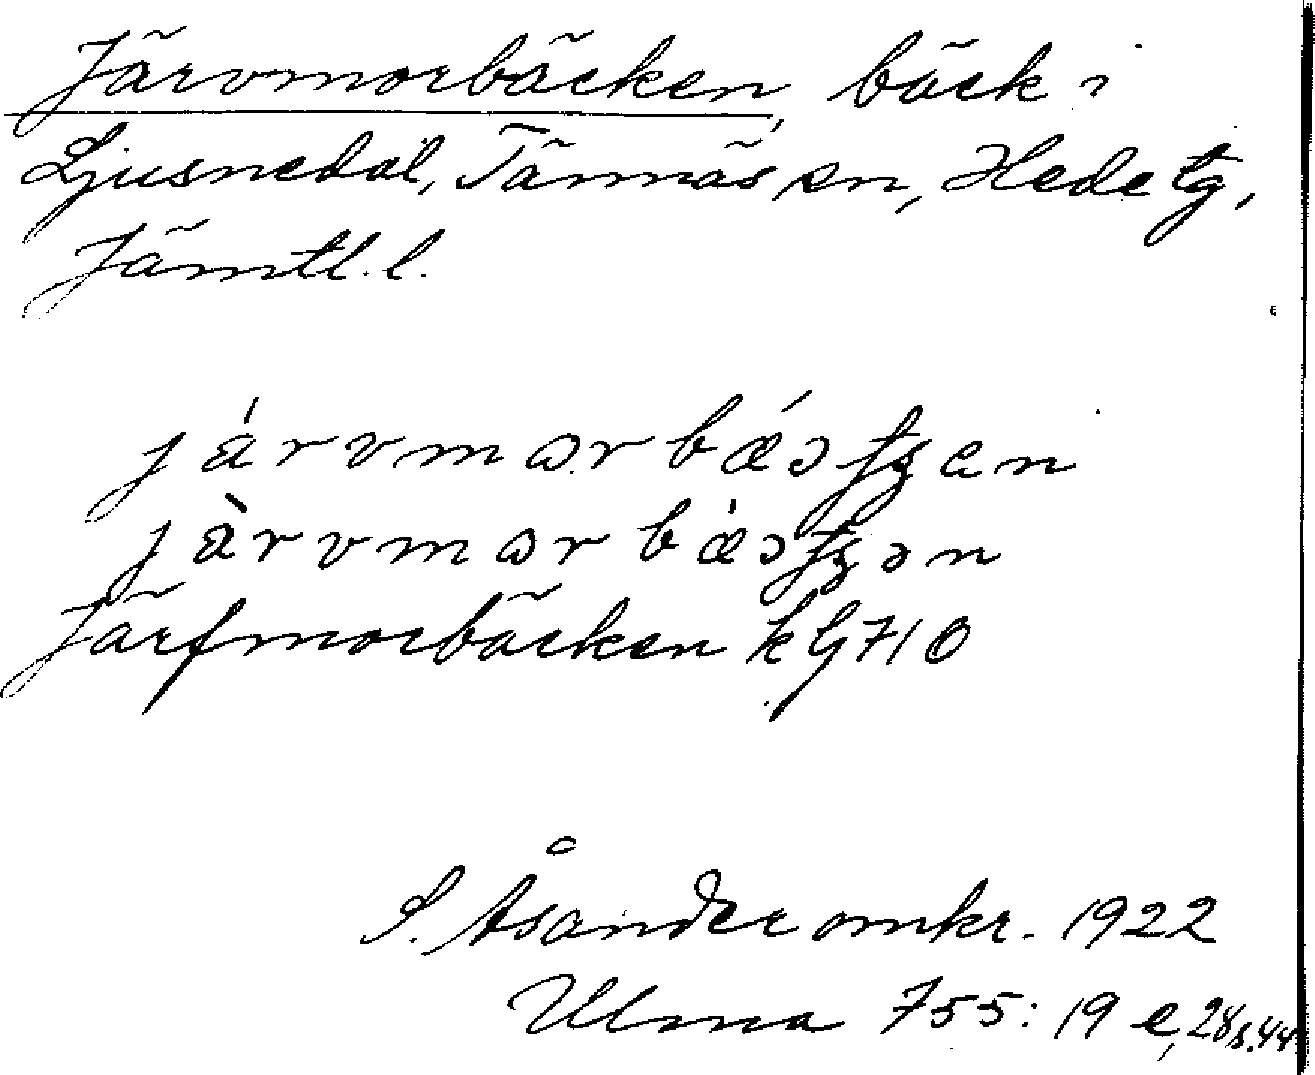 Järvmorbäcken, bäck i
Ljusnedal, Tännäs sn, Hede tg,
Jämtl. l.
järvmɷrbǽɔʈʂen
jàrvmɷrbæ̍ɔʈʂɔn
Järfmorbäcken kG710
S. Åsander omkr. 1922
Ulma 755: 19 e, 28 s. 44